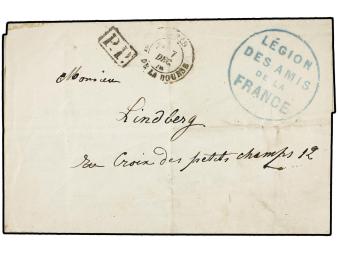 P.P.
7
DEC
DE LA BOURSE
LÉGION
DES AMIS
DE LA
FRANCE
Monsieur
Lindberg
Rue Croix des petits champs 12